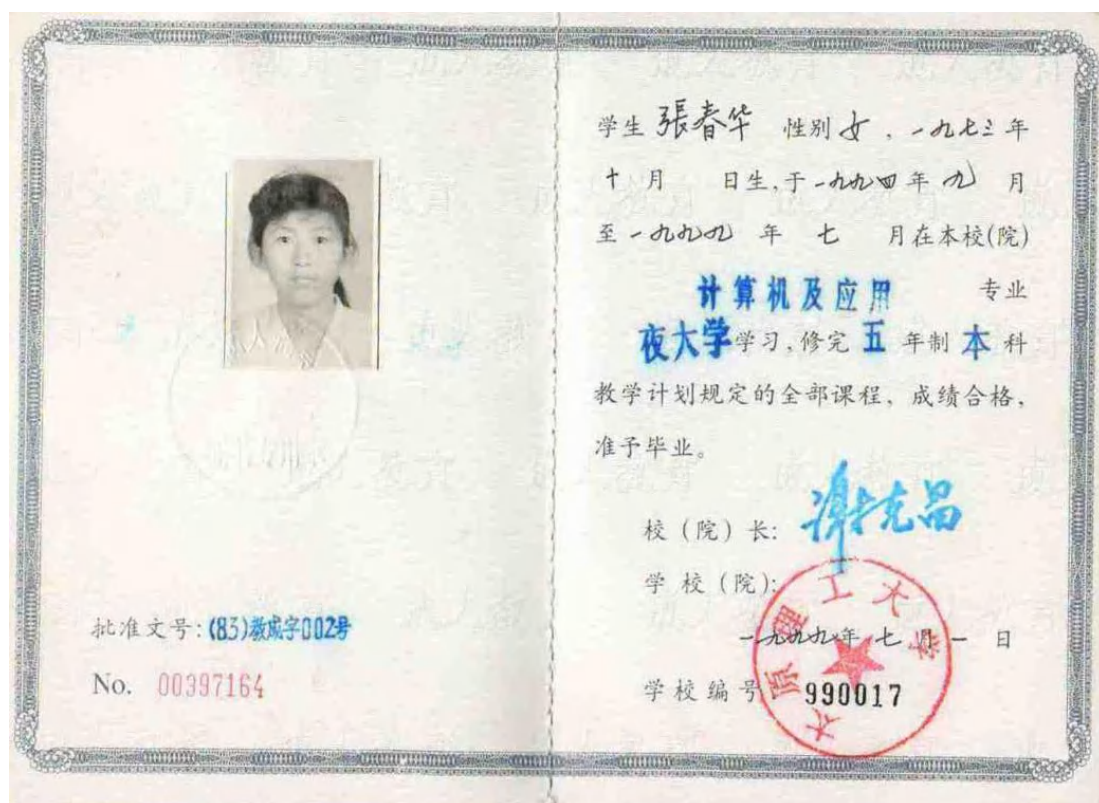 批准文号:(83)教成字002号
No. 00397164
学生 張春华 性别 女 , 一九七三 年
十 月 日生,于 一九九四 年 九 月
至 一九九九 年 七 月在本校(院)
计算机及应用 专业
夜大学学习,修完 五 年制 本 科
教学计划规定的全部课程,成绩合格,
准予毕业。
校(院)长: 谢克昌
学校(院):
太原理工大学
一九九九年 七 月 一 日
学校编号 990017